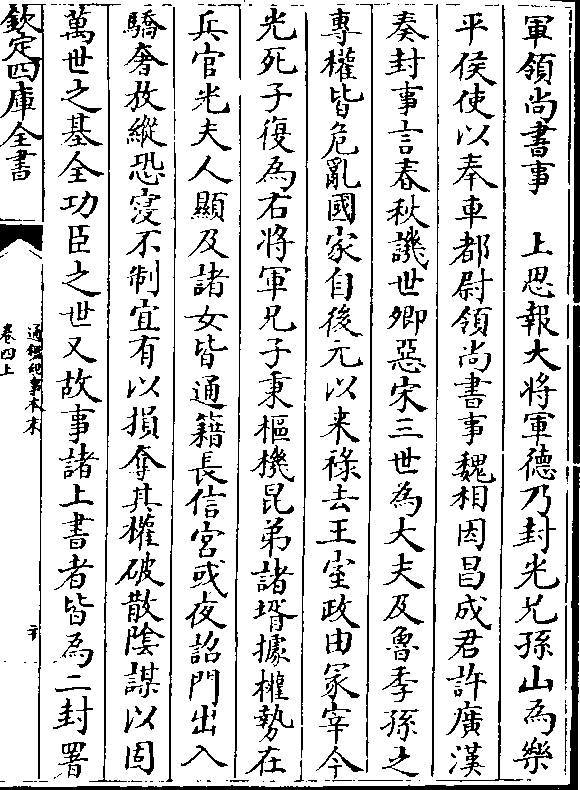 軍領尚書事　上思報大將軍德乃封光兄孫山為樂
平侯使以奉車都尉領尚書事魏相因昌成君許廣漢
奏封事言春秋譏世卿惡宋三世為大夫及魯季孫之
專權皆危亂國家自後元以来祿去王室政由冢宰今
光死子復為右將軍兄子秉樞機昆弟諸壻據權勢在
兵官光夫人顯及諸女皆通籍長信宮或夜詔門出入
驕奢放縱恐寖不制宜有以損奪其權破散陰謀以固
萬世之基全功臣之世又故事諸上書者皆為二封署
欽定四庫全書
通鑑紀事本末
卷四上